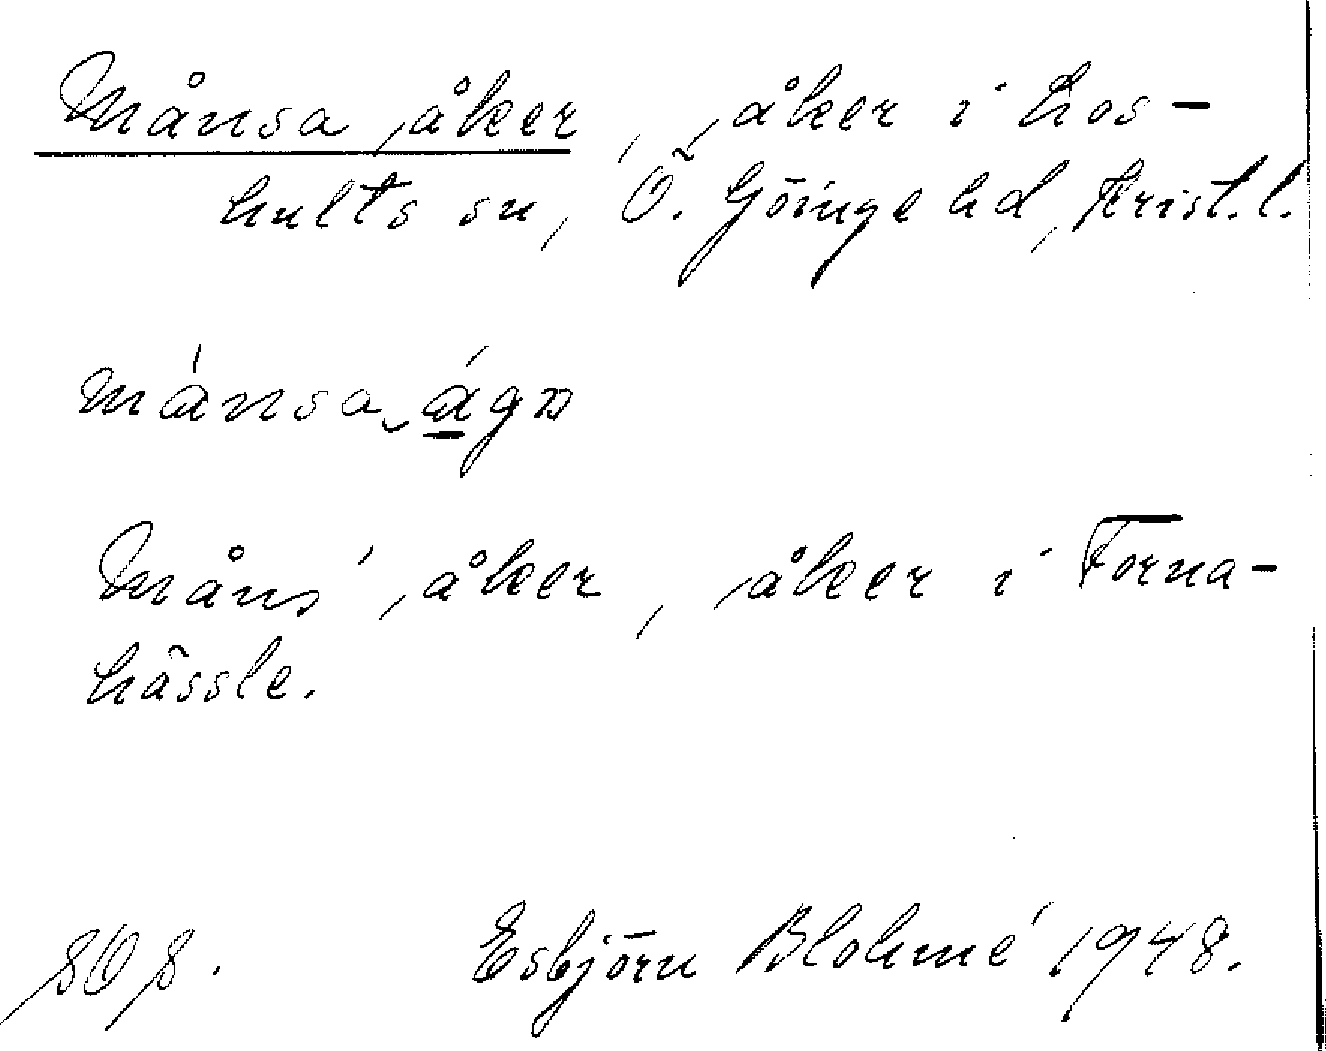 Månsa åker, åker i Los-
hults sn, Ö. Göinge hd, Krist.l.
mánsa‿ágɒ
Måns' åker, åker i Forna-
hässle.
Esbjörn Blohmé 1948.